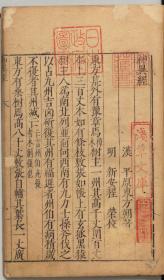 神異經
漢 平原東方朔著
明 新安程榮校
東方荒外有豫章焉此樹主一州其高千丈圍百
丈本上三百丈本如有條枝敷張如帳上有玄狐黑猿
樹主一州南北並列面向西南有九力士操斧伐之
以占九州吉凶斫之復生其州有福遲者州伯有病積歲
不復者其州滅亡
東方有桑樹焉高八十丈敷張自輔其葉長一丈廣